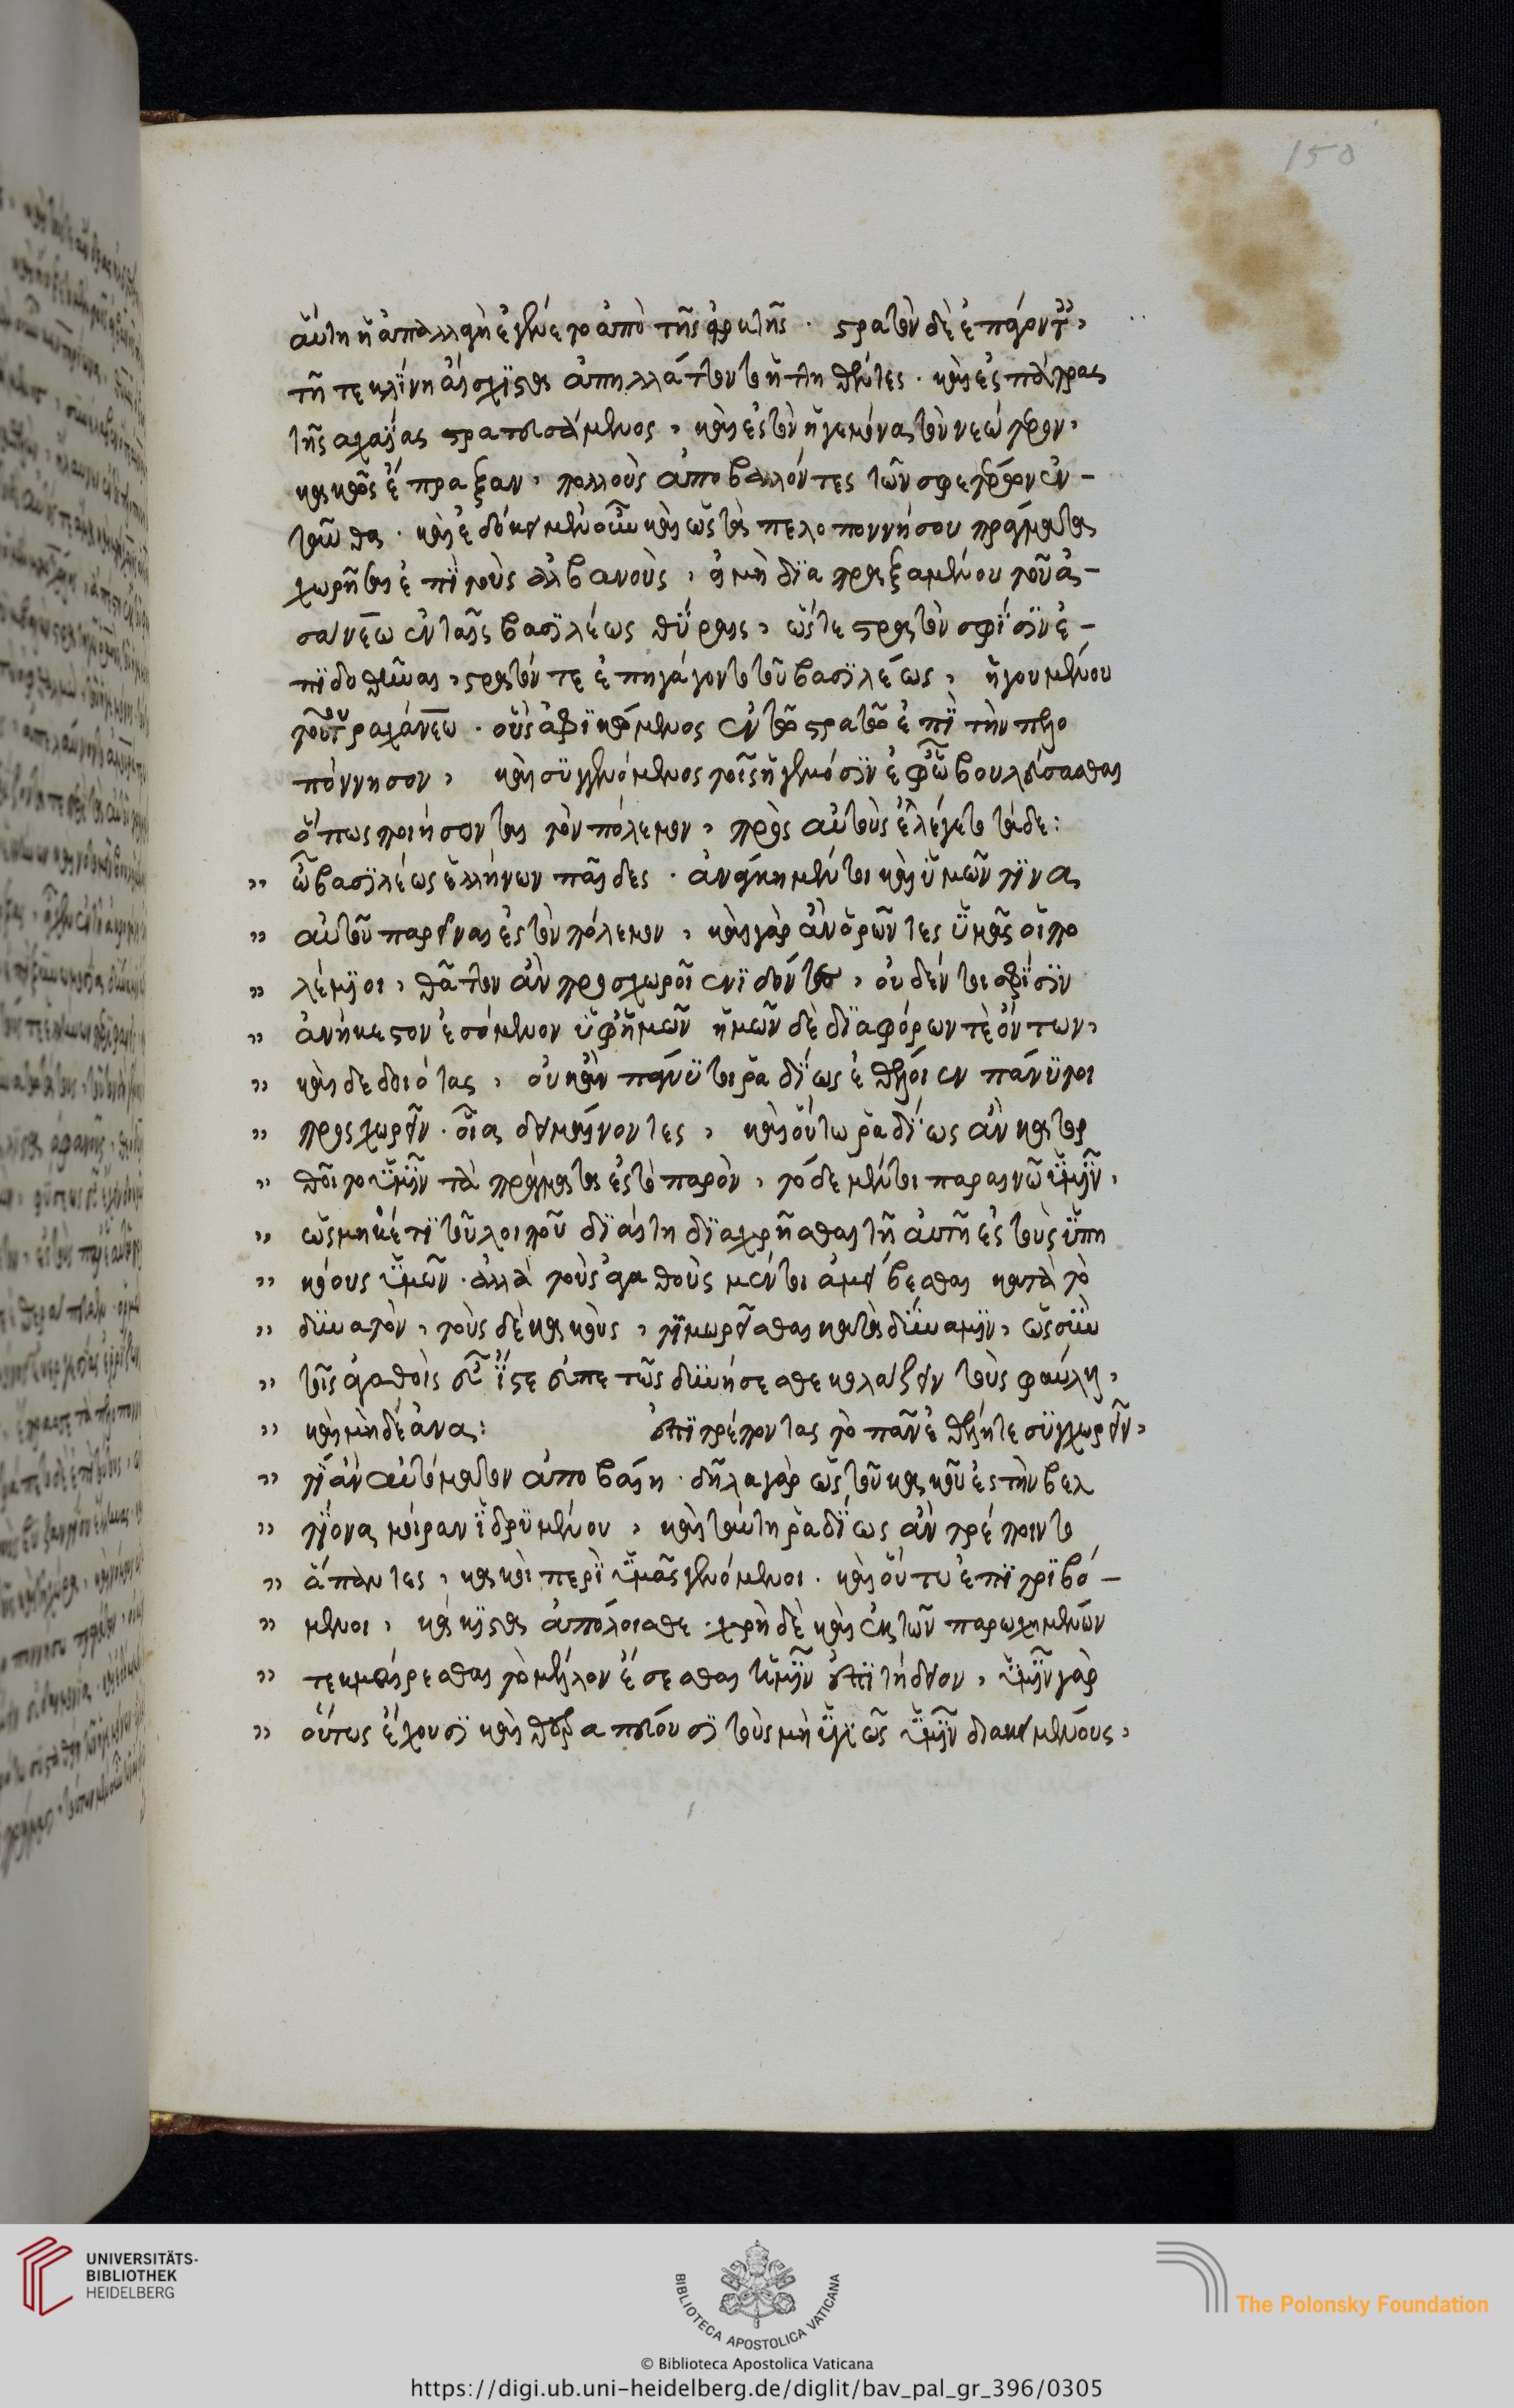 αὕτη ἡ ἀπαλλαγὴ ἐγένετο ἀπὸ τῆς ἀρκτης. στρατὸν δὲ ἐπάροντες,
τῇ τε κλίνῃ αἴσχιστα ἀπηλλάττοντο ἡττηθέντες. καὶ ἐς πάτρας
τῆς ἀχαΐας στρατευσάμενος, καὶ ἐς τὸν ἡγεμόνα τὸν νεώτερον,
κακῶς ἔπραξαν, πολλοὺς ἀποβαλλόντες τῶν σφετέρων ἐν-
ταῦθα. καὶ ἐδόκει μὲν οὖν καὶ ὡς τὰ πελοποννήσου πράγματα
χωρῆσαι ἐπὶ τοὺς ἀλβανοὺς, εἰ μὴ διαπραξαμένου τοῦ ἀ-
σάνεω ἐν ταῖς βασιλέως θύραις, ὥστε στρατὸν σφίσιν ἐ-
πιδοθῆναι, στρατόν τε ἐπηγάγοντο τοῦ βασιλέως, ἡγουμένου
τοῦ τουραχάνεω. οὗς ἀφικόμενος ἐν τῷ στρατῷ ἐπὶ τὴν πελο
πόννησον, καὶ συγγενόμενος τοῖς ἡγεμόσιν ἐφ' ᾧ βουλεύσασθαι
ὅπως ποιήσονται τὸν πόλεμον, πρὸς αὐτοὺς ἐλέγετο τάδε:
" ὦ βασιλέως ἑλλήνων παῖδες. ἀνάγκη μέντοι καὶ ὑμῶν τινα
" αὐτοῦ παρεῖναι ἐς τὸν πόλεμον, καὶ γὰρ ἂν ὁρῶντες ὑμᾶς οἱ πο
" λέμιοι, θᾶττον ἂν προσχωροῖεν ἰδόντες, οὐδέν τι σφίσιν
" ἀνήκεστον ἐσόμενον ὑφ' ἡμῶν ἡμῶν δὲ διαφόρων τὲ ὄντων,
" καὶ δεδοιότας, οὐκ ἂν πάνυ τι ῥαδίως ἐθέλοιεν πάνυ τοι
" προσχωρεῖν. οἷα δειμαίνοντες, καὶ οὕτω ῥαδίως ἂν κατορ
" θοῖτο ὑμῖν τὰ πράγματα ἐς τὸ παρὸν, τόδε μέντοι παραινῶ ὑμῖν,
" ὡς μηκέτι τοῦ λοιποῦ διαίτῃ διαχρῆσθαι τῇ αὐτῇ ἐς τοὺς ὑπη
" κόους ὑμῶν. ἀλλὰ τοὺς ἀγαθοὺς μέντοι ἀμείβεσθαι κατὰ τὸ
" δυνατόν, τοὺς δὲ κακοὺς, τιμωρεῖσθαι κατὰ δύναμιν, ὡς σὺν
" τοῖς ἀγαθοῖς εὖ ἴστε εὐπετῶς δυνήσεσθε κολάζειν τοὺς φαύλους,
" καὶ μὴ δέ ἀνα: ἐπιτρέποντας τὸ πᾶν ἐθέλητε συγχωρεῖν,
" τί ἂν αὐτόματον ἀποβαίη. δῆλα γὰρ ὡς τοῦ κακοῦ ἐς τὴν βελ
" τίονα μοῖραν ἱδρυμένου, καὶ ταύτῃ ῥαδίως ἂν τρέποιντο
" ἅπαντες, κακοὶ περὶ ὑμᾶς γενόμενοι. καὶ οὕτω ἐπιτριβό-
" μενοι, κάκιστα ἀπόλοισθε. χρὴ δὲ καὶ ἐκ τῶν παρωχημένων
" τεκμαίρεσθαι τὸ μέλλον ἔσεσθαι ὑμῖν ἐπιτήδειον, ὑμῖν γὰρ
" οὕτως ἔχουσι καὶ θεραπεύουσι τοὺς μὴ ὑγιῶς ὑμῖν διακειμένους,
150
UNIVERSITÄTS-
BIBLIOTHEK
HEIDELBERG
BIBLIOTECA APOSTOLICA VATICANA
The Polonsky Foundation
© Biblioteca Apostolica Vaticana
https://digi.ub.uni-heidelberg.de/diglit/bav_pal_gr_396/0305